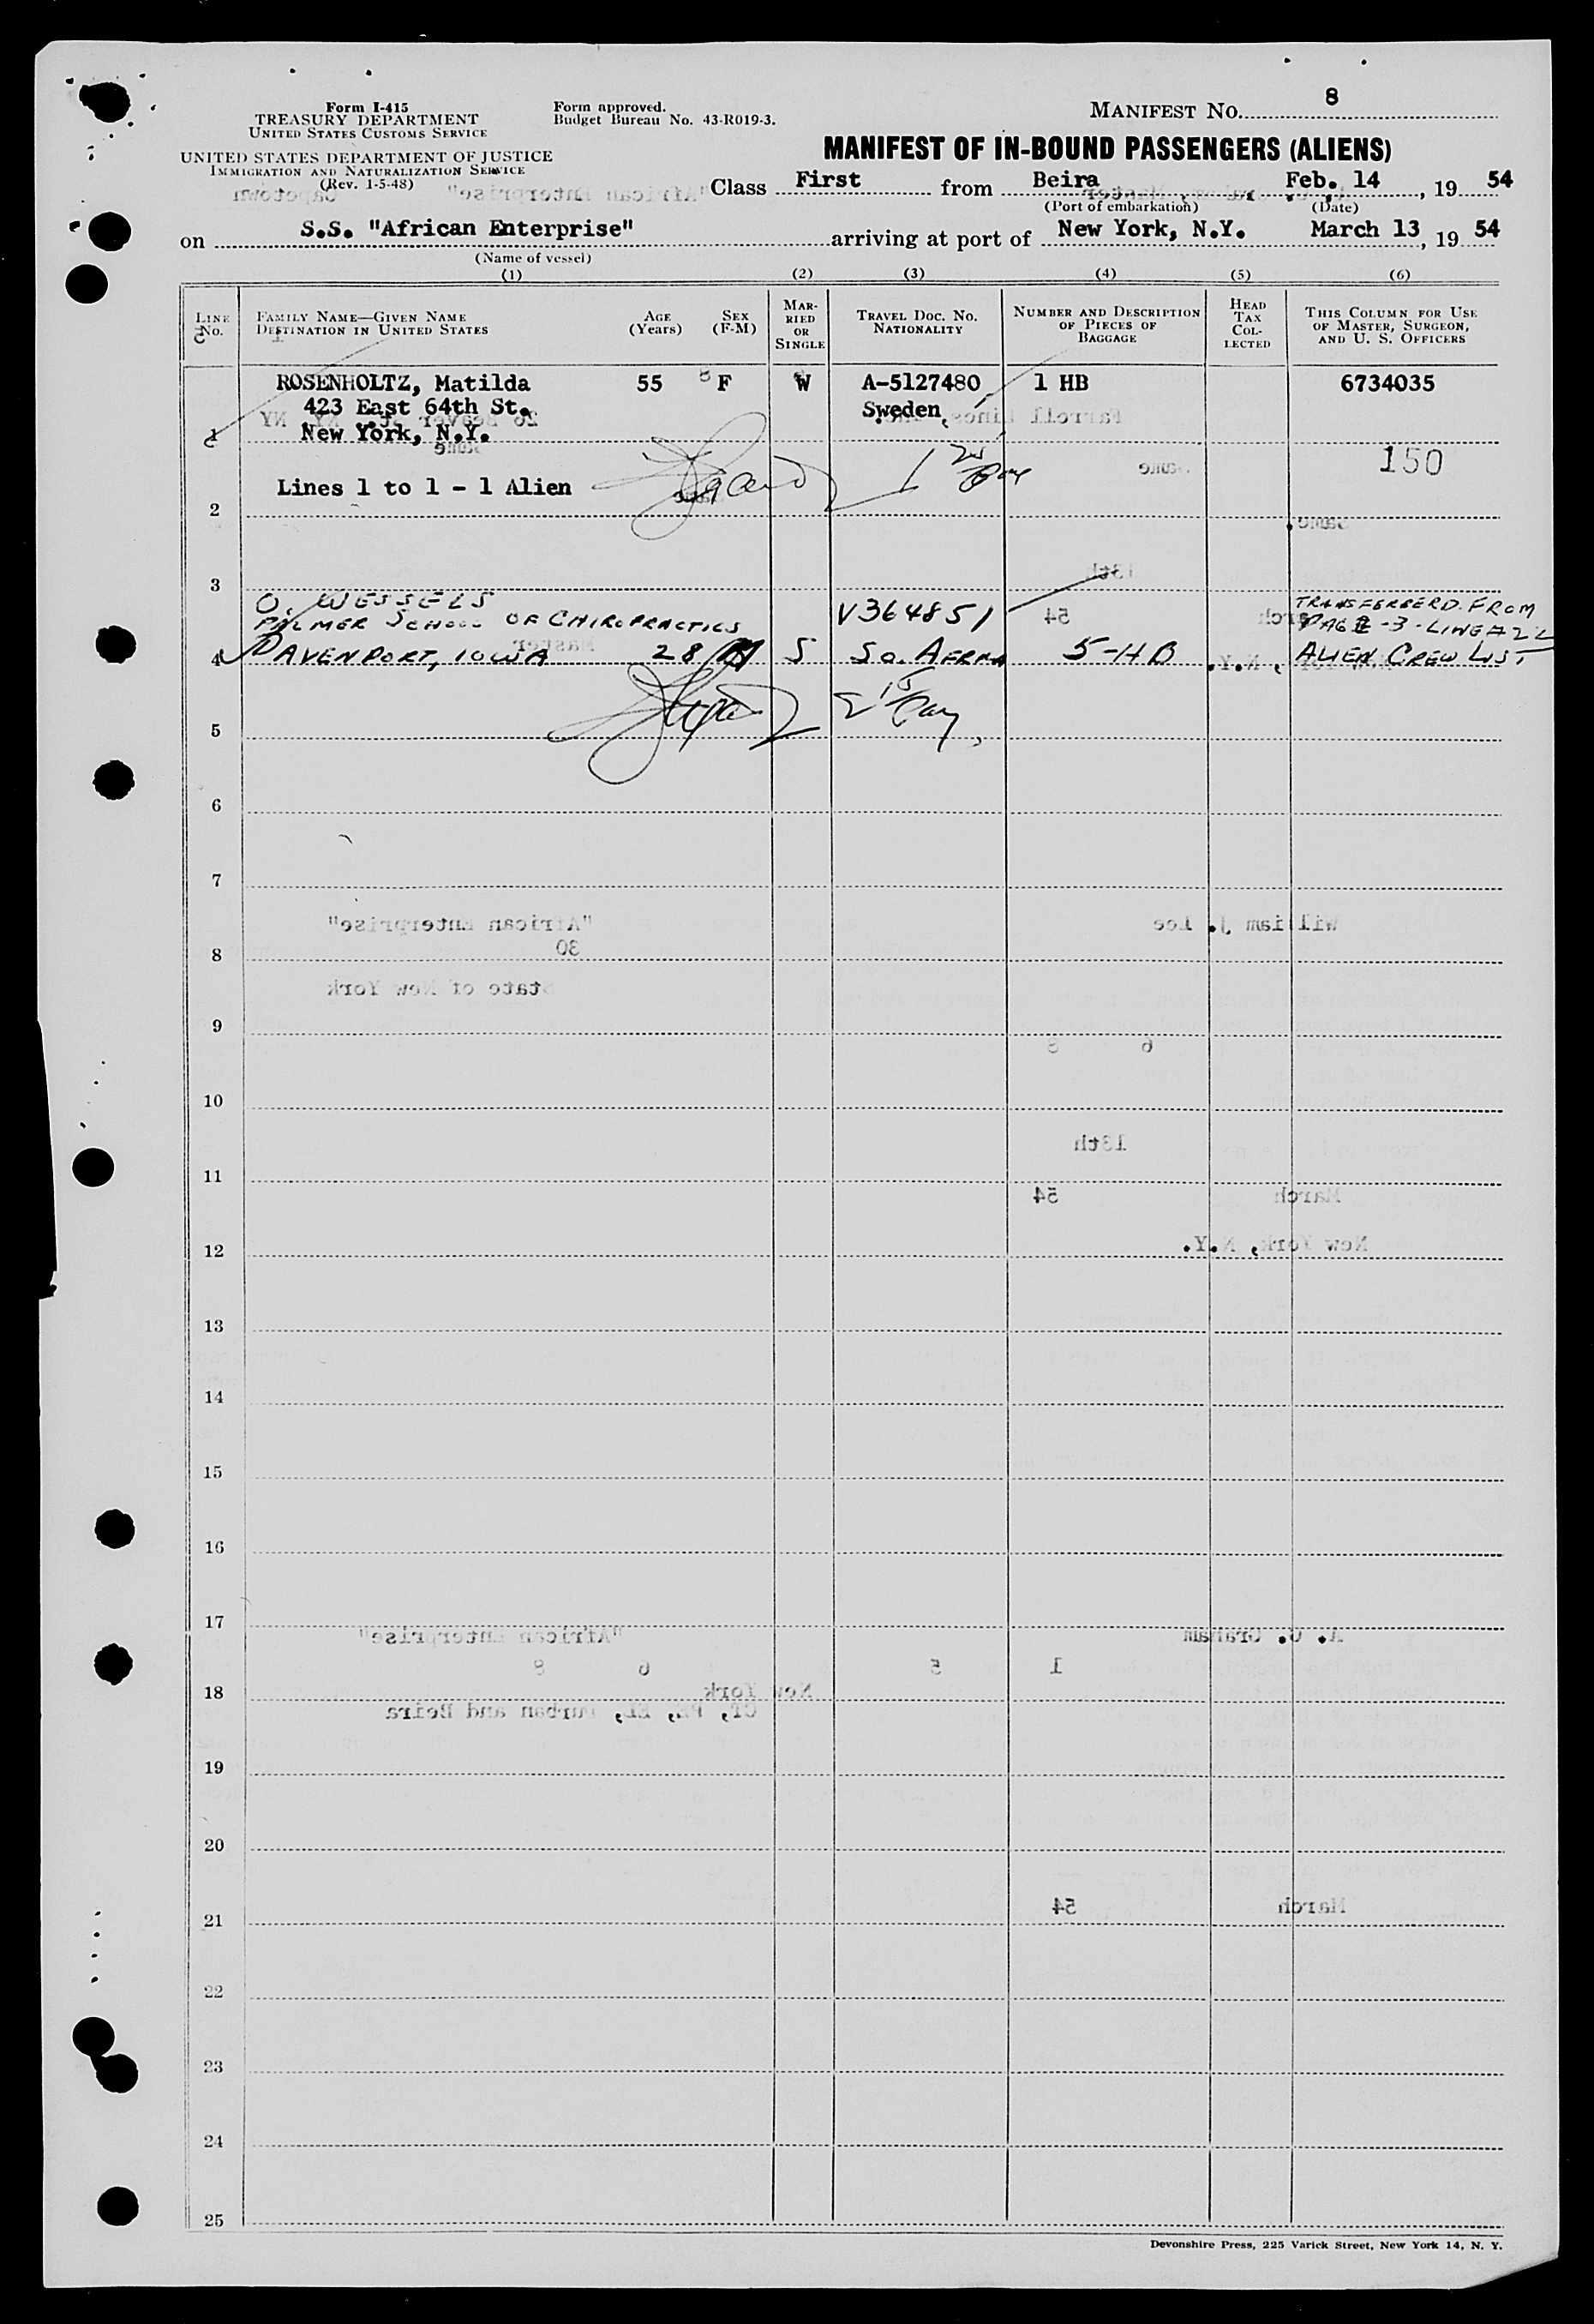 Form I-415
TREASURY DEPARTMENT
UNITED STATES CUSTOMS SERVICE
UNITED STATES DEPARTMENT OF JUSTICE
IMMIGRATION AND NATURALIZATION SERVICE
(Rev. 1-5-48)
Form approved.
Budget Bureau No. 43-R019-3.
MANIFEST NO. 8
MANIFEST OF IN-BOUND PASSENGERS (ALIENS)
Class First from Beira Feb. 14, 19 54
(Port of embarkation) (Date)
on S.S. "African Enterprise" arriving at port of New York, N.Y. March 13, 19 54
(Name of vessel)
(1) (2) (3) (4) (5) (6)
LINE No. FAMILY NAME—GIVEN NAME DESTINATION IN UNITED STATES AGE (Years) SEX (F-M) MARRIED OR SINGLE TRAVEL DOC. NO. NATIONALITY NUMBER AND DESCRIPTION OF PIECES OF BAGGAGE HEAD TAX COLLECTED THIS COLUMN FOR USE OF MASTER, SURGEON, AND U. S. OFFICERS
ROSENHOLTZ, Matilda 55 F W A-5127480 1 HB 6734035
423 East 64th St. Sweden
1 New York, N.Y.
150
Lines 1 to 1 - 1 Alien
2
3
O. WESSELS V364851 TRANSFERRERD. FROM
PALMER SCHOOL OF CHIROPRACTICS PAGE -3- LINE # 22
4 DAVENPORT, IOWA 28 M S So. AFRICA 5-HB ALIEN CREW LIST
5
6
7
8
9
10
11
12
13
14
15
16
17
18
19
20
21
22
23
24
25
Devonshire Press, 225 Varick Street, New York 14, N. Y.